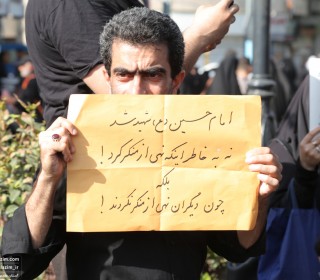 امام حسین (ع) شهید شد
نه به خاطر اینکه نهی از منکر کرد !
بلکه
چون دیگران نهی از منکر نکردند !